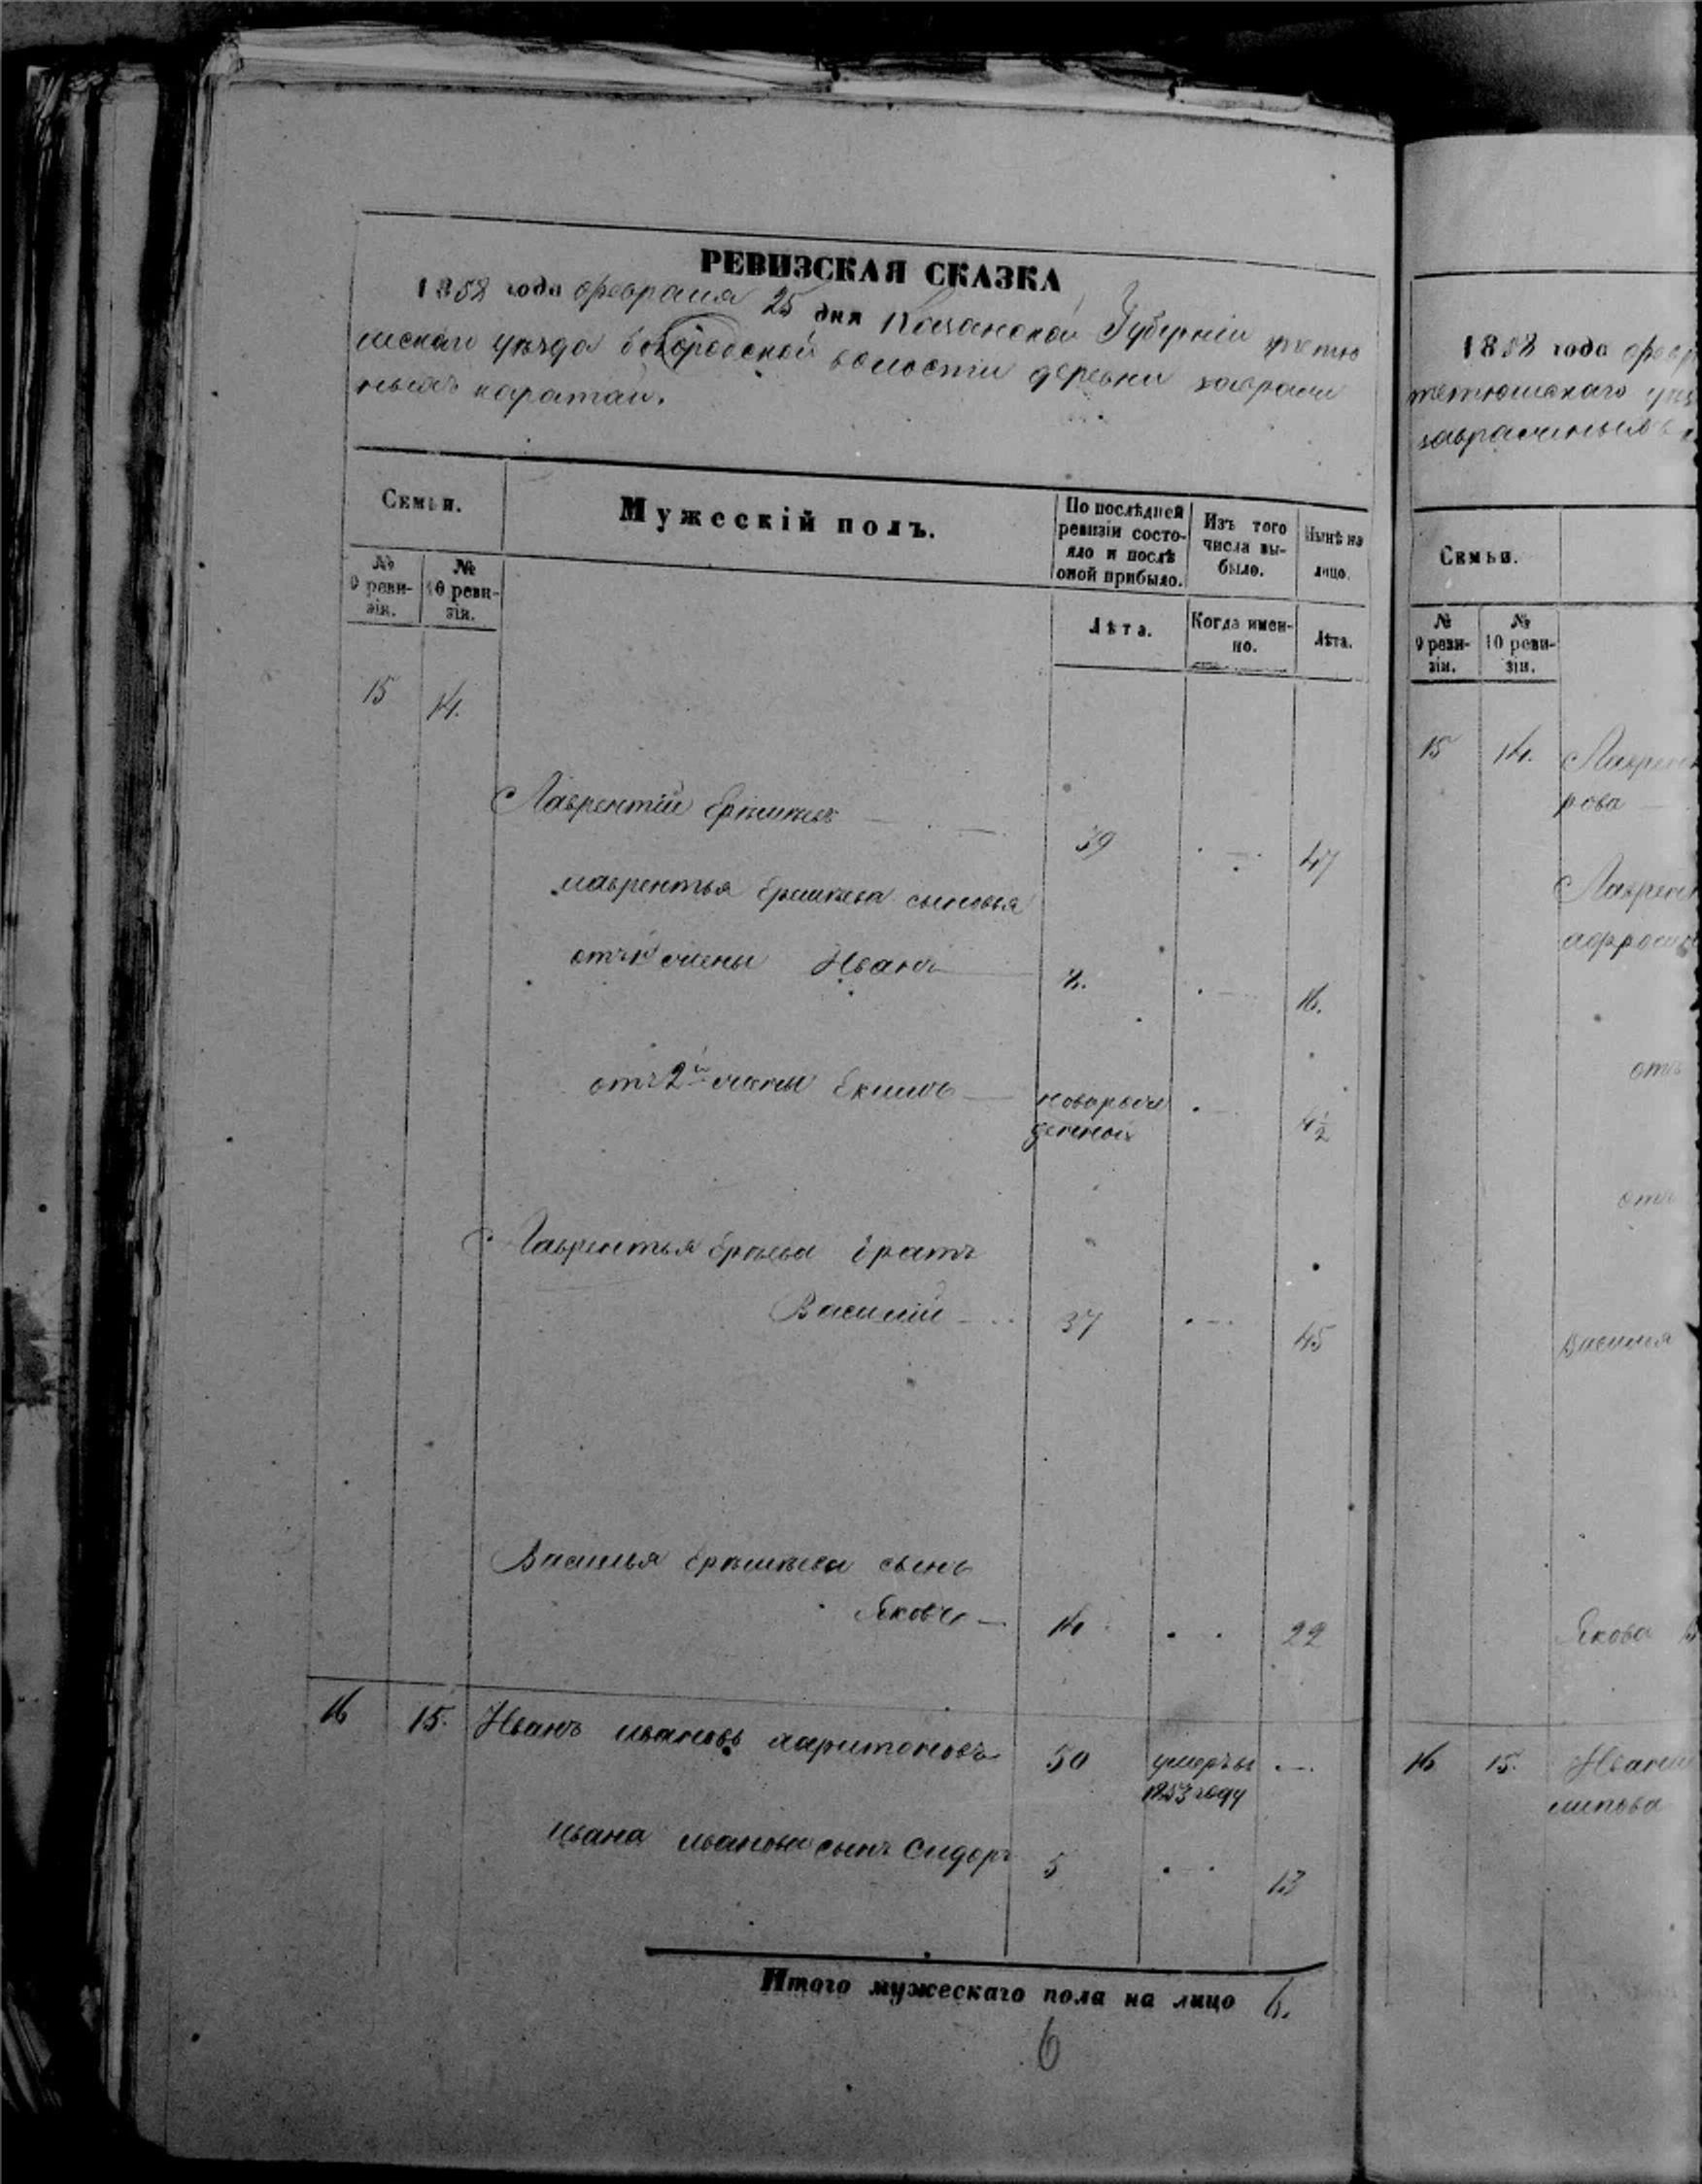 РЕВИЗСКАЯ СКАЗКА
1858 года февраля 25 дня Казанской Губерніи тетю
шскаго уѣзда богородской волости деревни заврали
ныхъ каратаи.
Семьи.
Мужескій полъ.
По послѣдней ревизіи состояло и послѣ оной прибыло.
Изъ того числа выбыло.
Нынѣ на лицо.
№ 9 ревизіи.
№ 10 ревизіи.
Лѣта.
Когда именно.
Лѣта.
15 14.
Лаврентій 39 47
лаврентья сыновья
отъ 1й жены Иванъ 8. 16.
отъ 2й жены Екимъ новорож
денный 4½
Лаврентья братъ
Василій 37 45
Василья сынъ
Яковъ 14 22
16 15. Иванъ ивановъ харитоновъ 50 умеръ въ
1853 году
ивана иванова сынъ Сидоръ 5 13
Итого мужескаго пола на лицо 6.
6
1858 года
тетюшскаго
Семьи.
№ 9 ревизіи.
№ 10 ревизіи.
15 14.
рова
отъ
отъ
Василья
Якова
16 15.